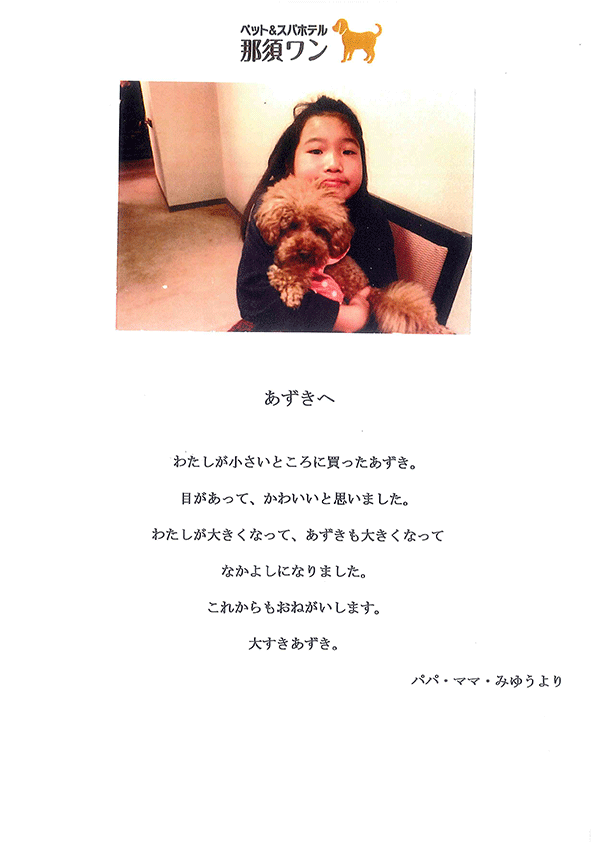 ペット&スパホテル
那須ワン
あずきへ
わたしが小さいところに買ったあずき。
目があって、かわいいと思いました。
わたしが大きくなって、あずきも大きくなって
なかよしになりました。
これからもおねがいします。
大すきあずき。
パパ・ママ・みゆうより